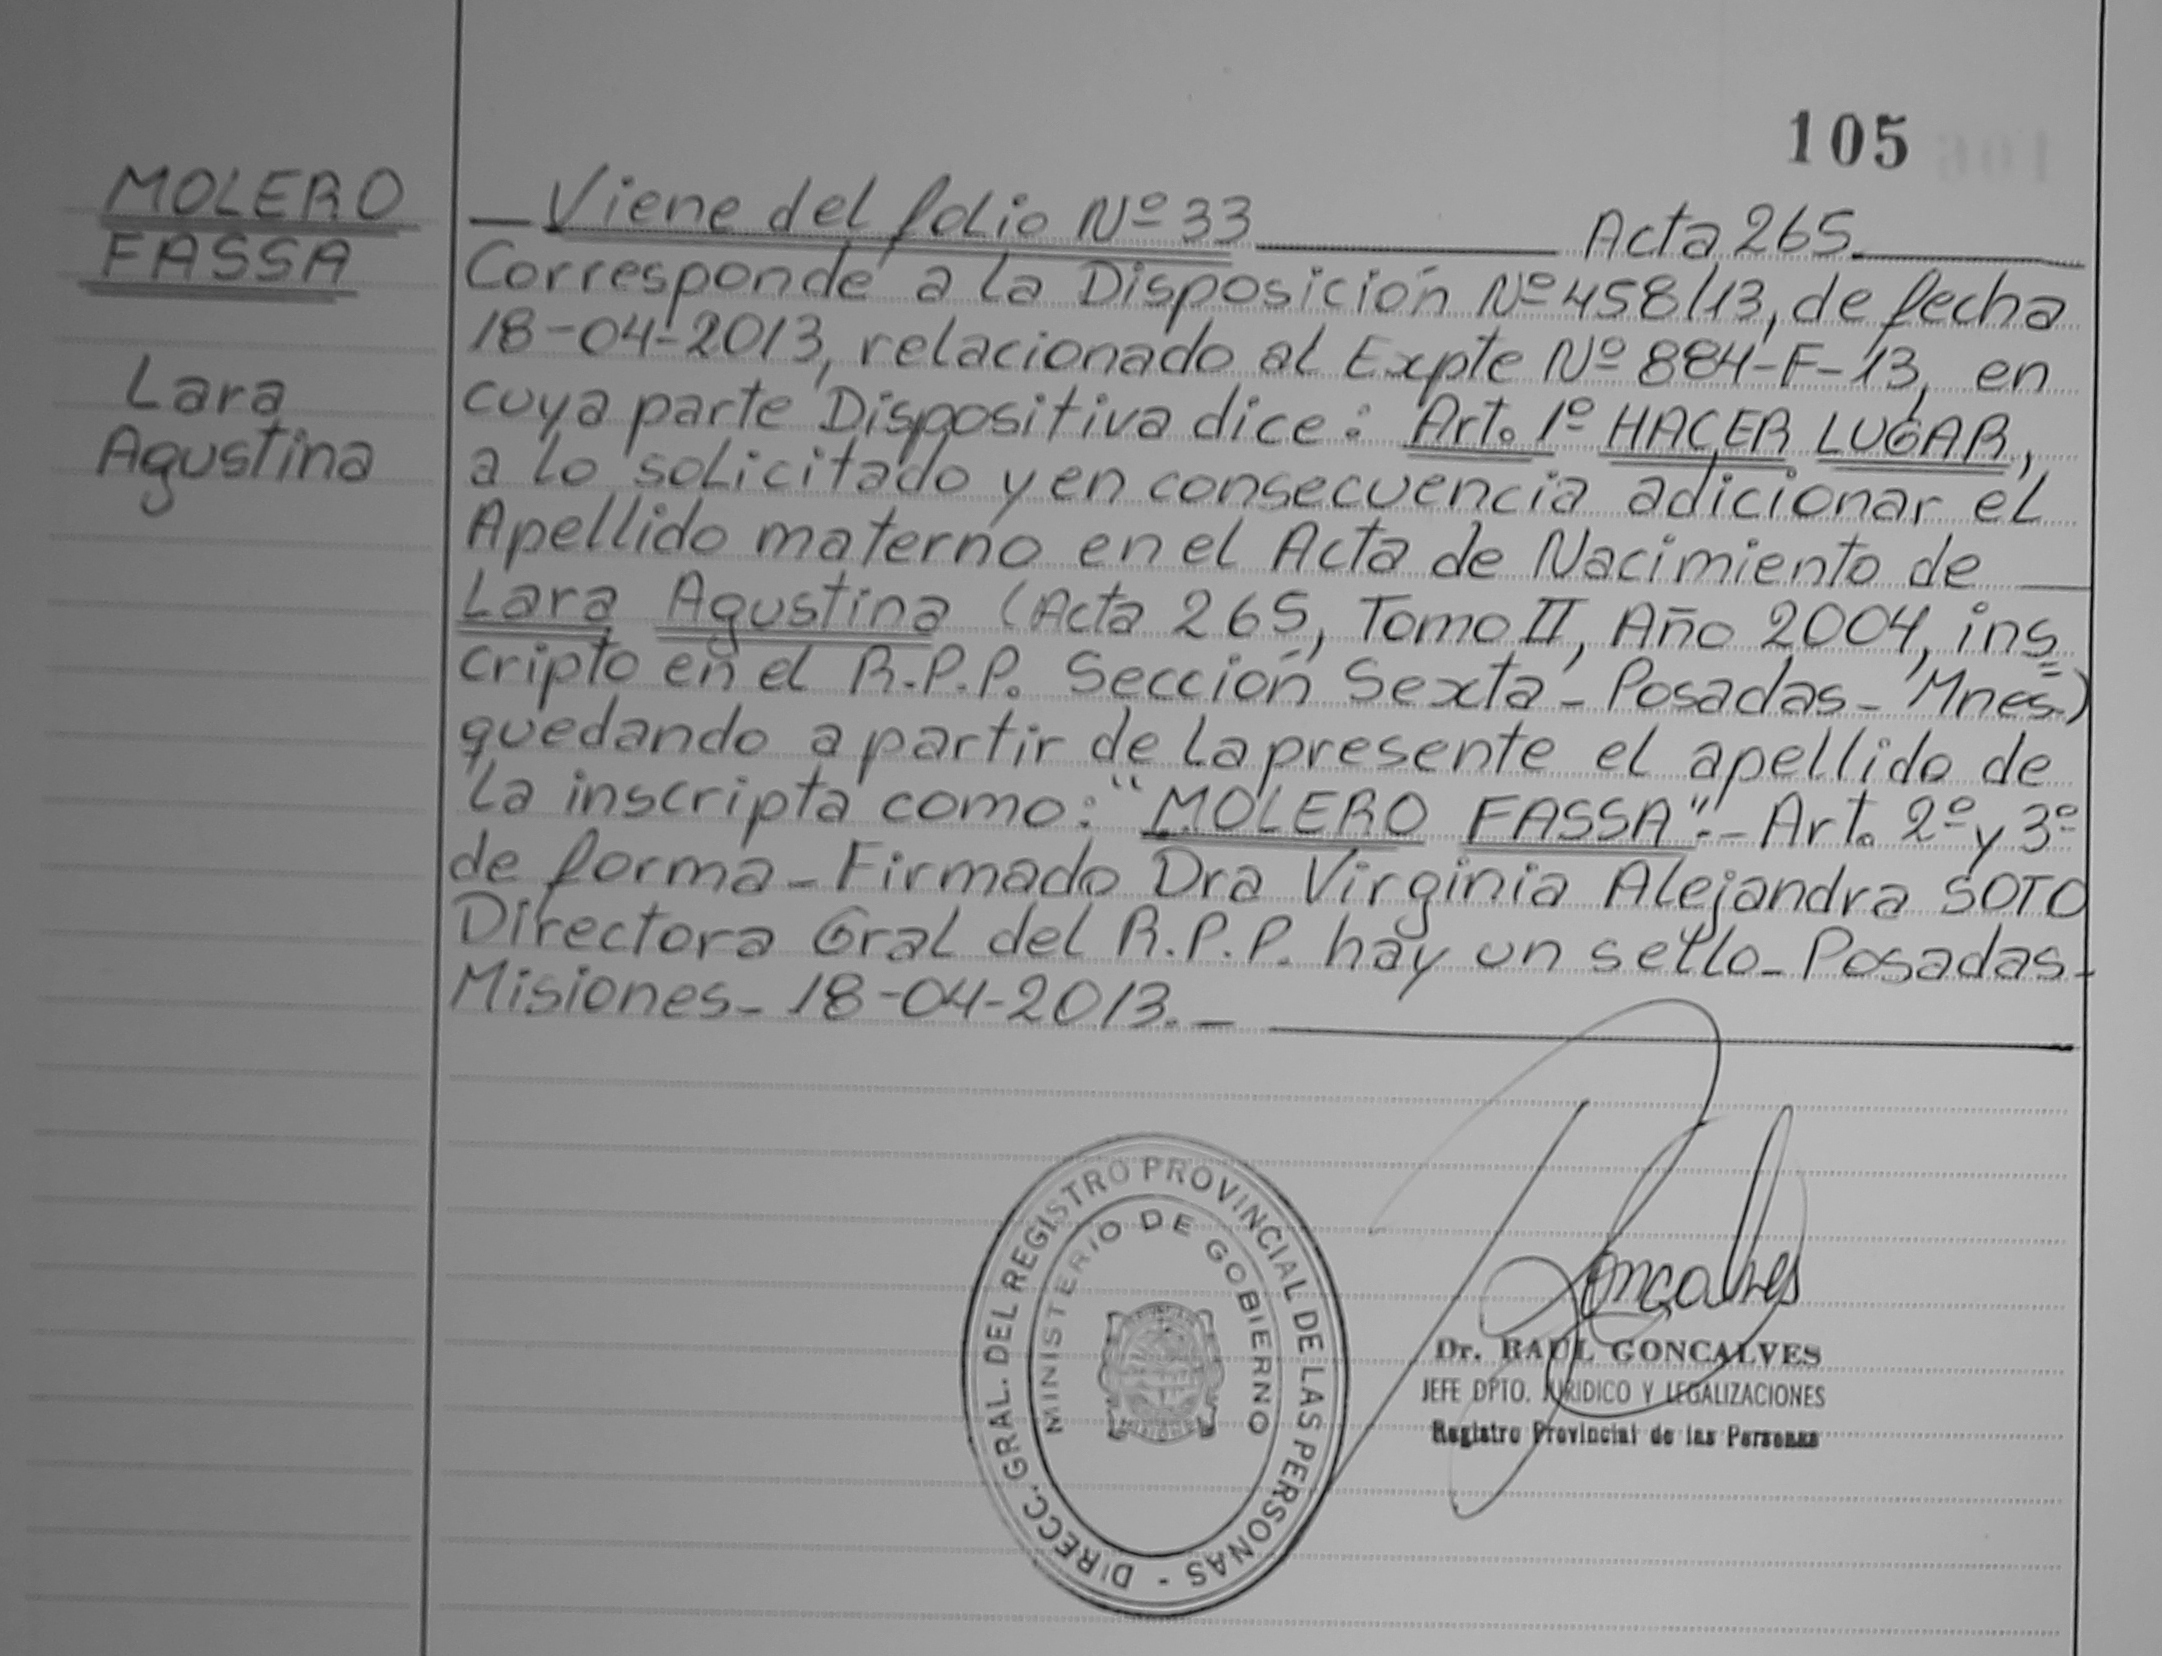 105
MOLERO
FASSA
Lara
Agustina
— Viene del folio Nº 33 ——— Acta 265.——
Corresponde a la Disposición Nº 458/13, de fecha
18-04-2013, relacionado al Expte Nº 884-F-13, en
cuya parte Dispositiva dice: Art. 1º HACER LUGAR,
a lo solicitado y en consecuencia adicionar el
Apellido materno en el Acta de Nacimiento de —
Lara Agustina (Acta 265, Tomo II, Año 2004, ins=
cripto en el R.P.P. Sección Sexta - Posadas - Mnes.)
quedando a partir de la presente el apellido de
la inscripta como: "MOLERO FASSA".- Art. 2º y 3º
de forma - Firmado Dra Virginia Alejandra SOTO
Directora Gral del R.P.P. hay un sello - Posadas -
Misiones - 18-04-2013. - ———
DIRECC. GRAL. DEL REGISTRO PROVINCIAL DE LAS PERSONAS -
MINISTERIO DE GOBIERNO
Goncalves
Dr. RAUL GONCALVES
JEFE DPTO. JURIDICO Y LEGALIZACIONES
Registro Provincial de las Personas